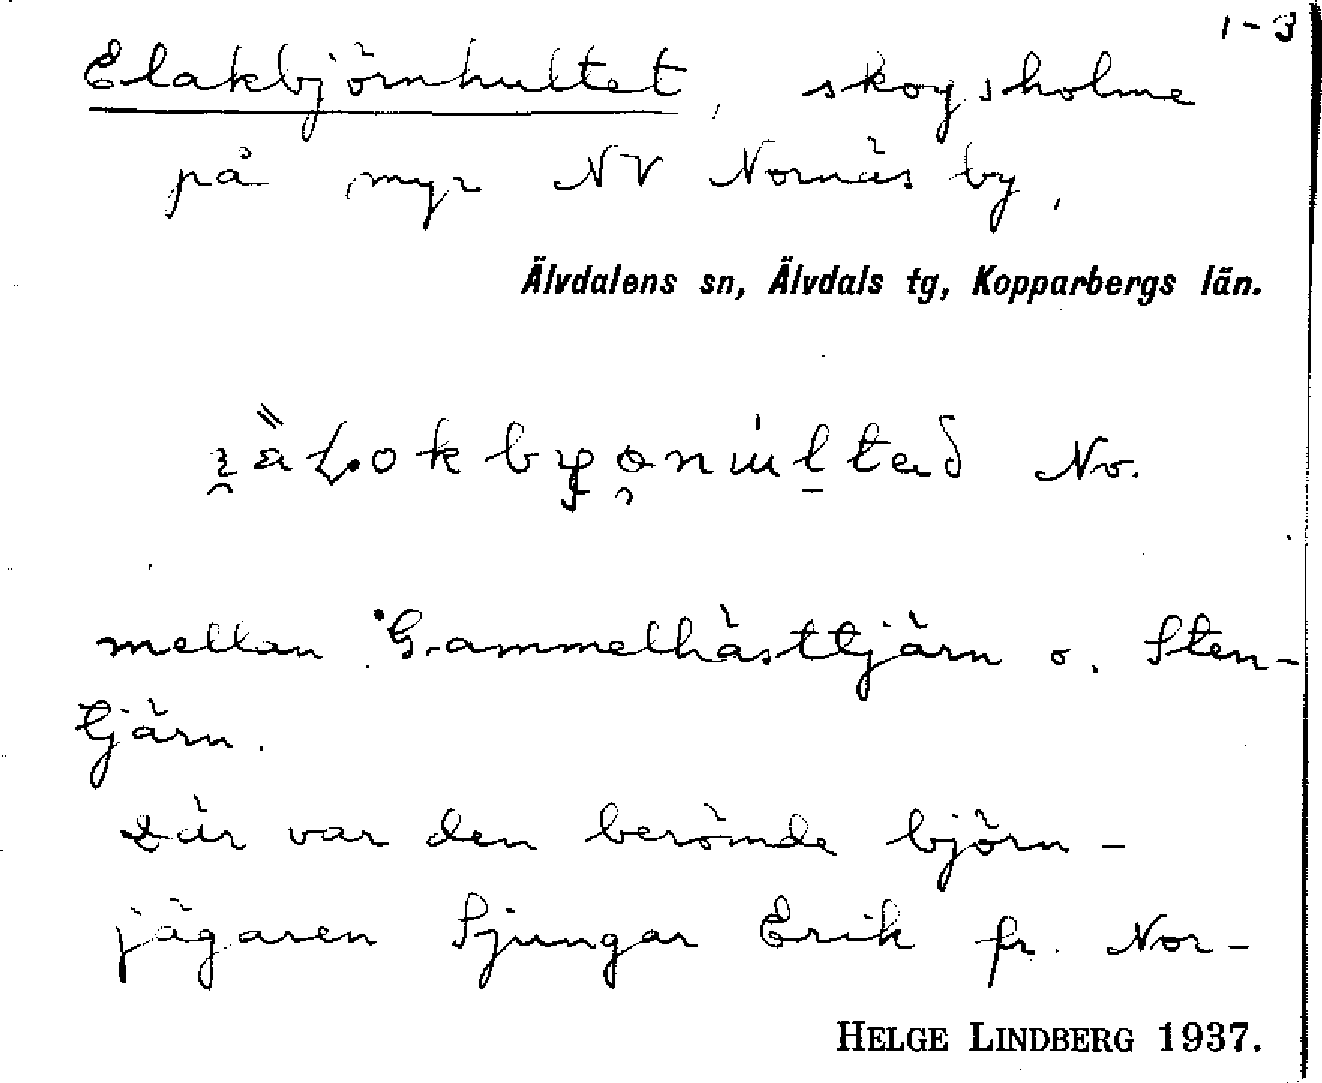 1-3
Elakbjörnhultet, skogsholme
på myr NV Nornäs by.
Älvdalens sn, Älvdals tg, Kopparbergs län.
No.
mellan Gammelhästtjärn o. Sten-
tjärn.
Där var den berömde björn-
jägaren Ljungar Erik fr. Nor-
HELGE LINDBERG 1937.